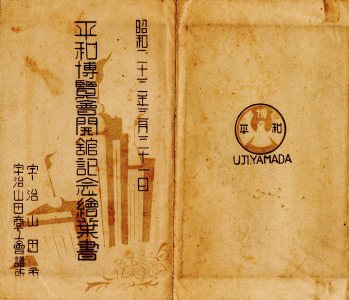 昭和二十三年三月三十一日
平和博覽會開舘記念繪葉書
宇治山田市
宇治山田商工會議所
博
平和
UJIYAMADA